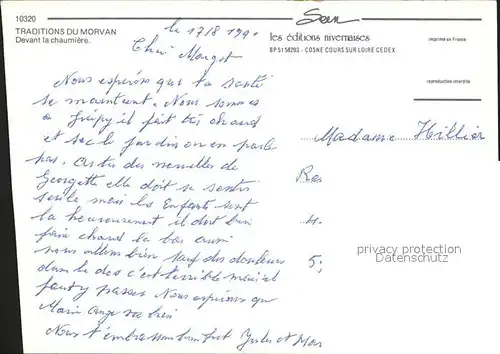 10320
TRADITIONS DU MORVAN
Devant la chaumière.
les éditions nivernaises
BP 5158203 - COSNE COURS SUR LOIRE CEDEX
imprimé en France
reproduction interdite
le 17/8 1991
Chère Margot
Nous espérons que ta santé
se maintient. Nous sommes
a il fait très chaud
et sec le jardin on en parle
pas. As tu des nouvelles de
Georgette elle doit se sentir
seule mais les Enfants sont
la heureusement il doit bien
faire chaud la bas aussi
nous allons bien sauf des douleurs
dans le dos c'est terrible mais il
faut y passer Nous espérons que
Marie Ange va bien
Nous t'embrassons bien fort et
Madame Hillier
privacy protection
Datenschutz